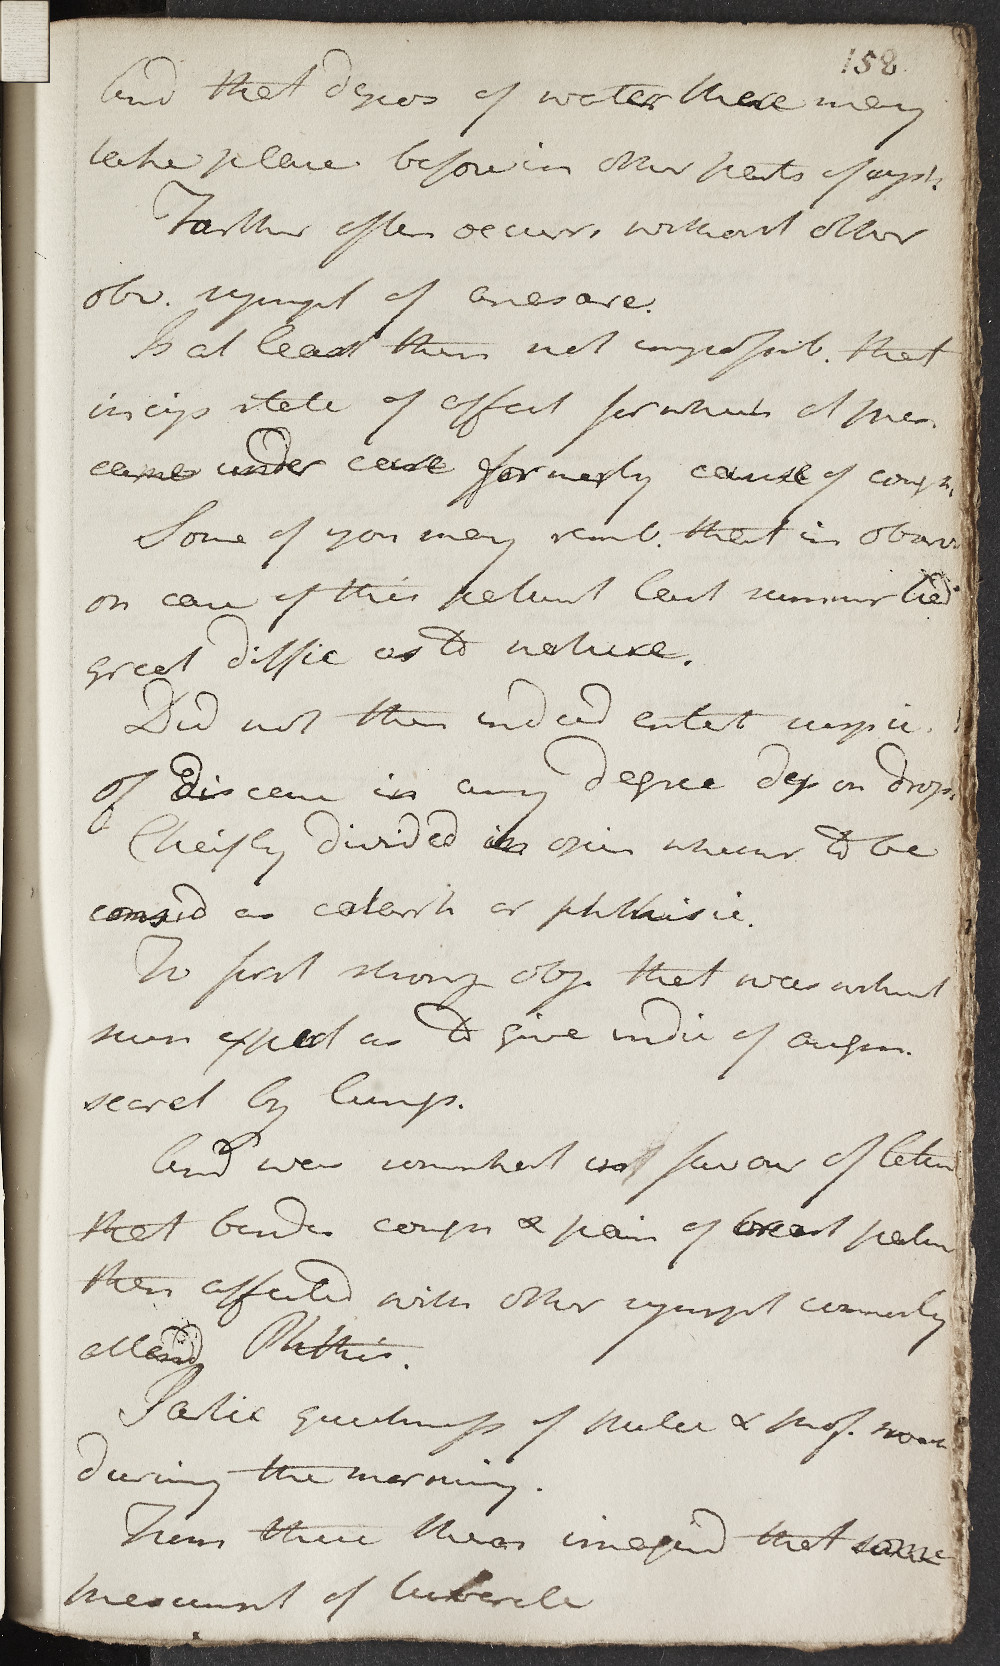 158
And that depos of water there may
take place before in other parts of syst.
Farther often occurs without other
obv. sympt of anasarc.
Is at least then not impossib. that
incip state of affect for which at pres.
came under care formerly cause of cough.
Some of you may remb. that in observ
on case of this patient last summer had
great diffic as to nature.
Did not then indeed entert suspic.
of disease in any degree dep on drops.
Cheifly divided in opin whether to be
consid as catarrh or phthisic.
To first strong obj. that was without
such expect as to give indic of augm.
secret by lungs.
And was somewhat in favour of latter
that besides cough & pain of breast patien
then affected with other sympt commonly
attendg Phthis.
Partic quickness of pulse & prof. sweat
during the morning.
From these then imagind that some
of tubercle